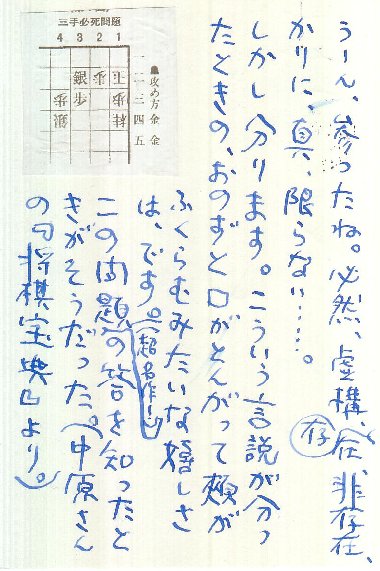 三手必死問題
4 3 2 1
一二三四五
▲攻め方 金金
うーん、参ったね。必然、虚構、在、非存在、
存
かりに、真、限らない……。
しかし分ります。こういう言説が分っ
たときの、おのずと口がとんがって頬が
ふくらむみたいな嬉しさ
は、です。(超名作!)
この問題の答を知ったと
きがそうだった。(中原さん
の『将棋宝典』より。)